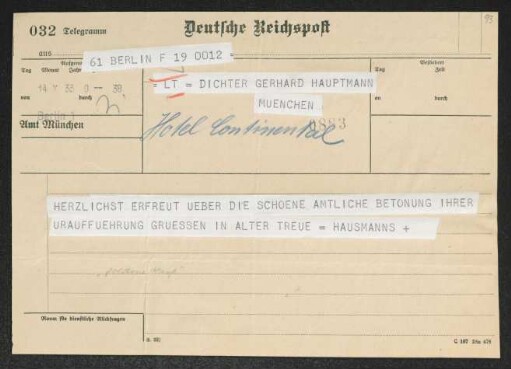 93
032 Telegramm Deutsche Reichspost
aus
61 BERLIN F 19 0012 =
Tag Monat Jahr Zeit
an durch
= LT = DICHTER GERHARD HAUPTMANN
MUENCHEN
Tag Zeit
an durch
Berlin
Amt München
Hotel Continental
HERZLICHST ERFREUT UEBER DIE SCHOENE AMTLICHE BETONUNG IHRER
URAUFFUEHRUNG GRUESSEN IN ALTER TREUE = HAUSMANNS +
Raum für dienstliche Rückfragen
C 187 Din 476